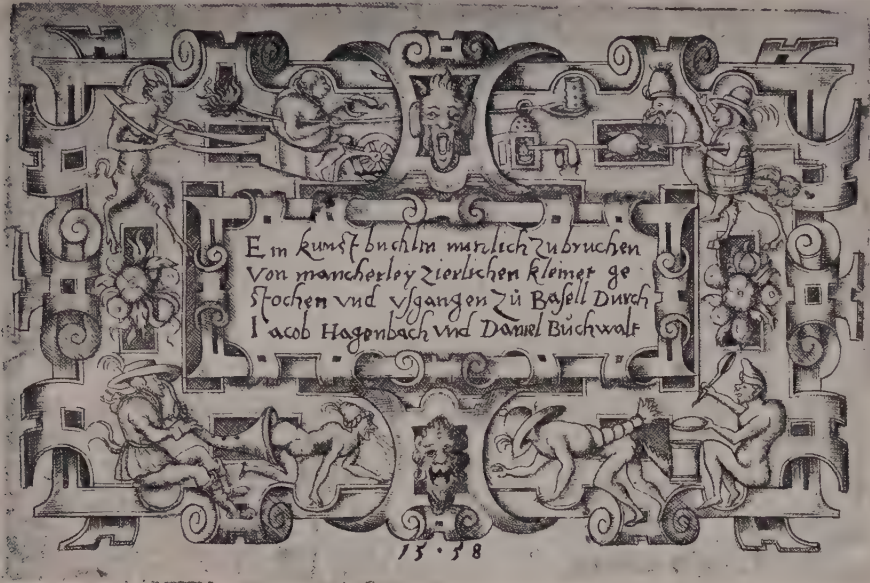 Ein kunst buchlin nutzlich zubruchen
Von mancherley zierlichen kleinet ge
stochen vnd vsgangen Zů Basell Durch
Iacob Hagenbach vnd Daniel Bůchwalt
15·58